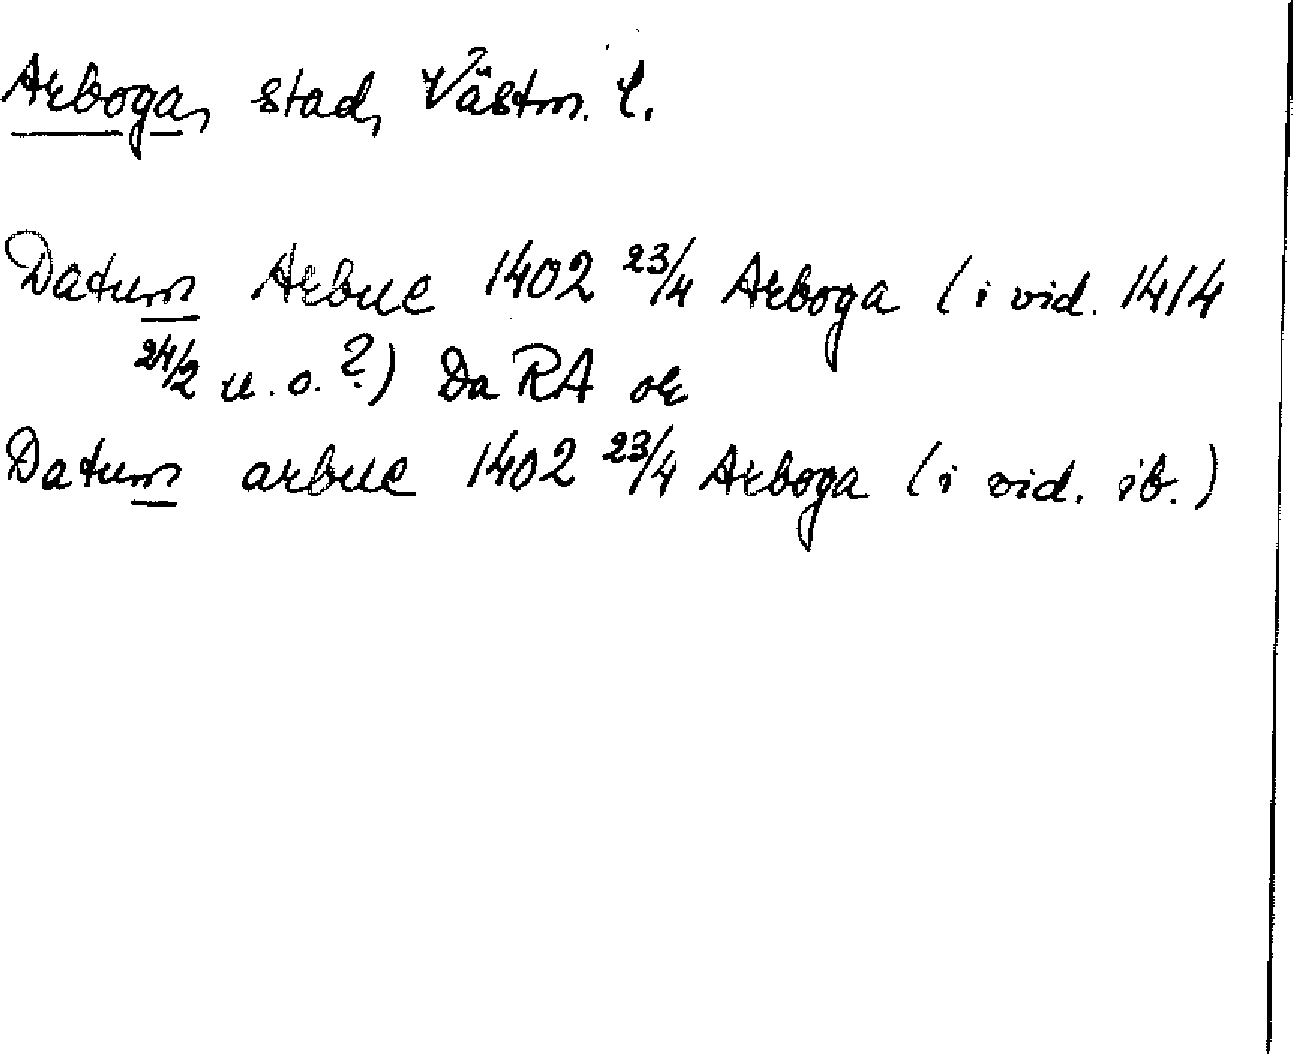 Arboga, stad, Västm. l.
Datum Arbue 1402 23/4 Arboga (i vid. 1414
24/2 u.o.?) Da RA or
Datum arbue 1402 23/4 Arboga (i vid. ib.)